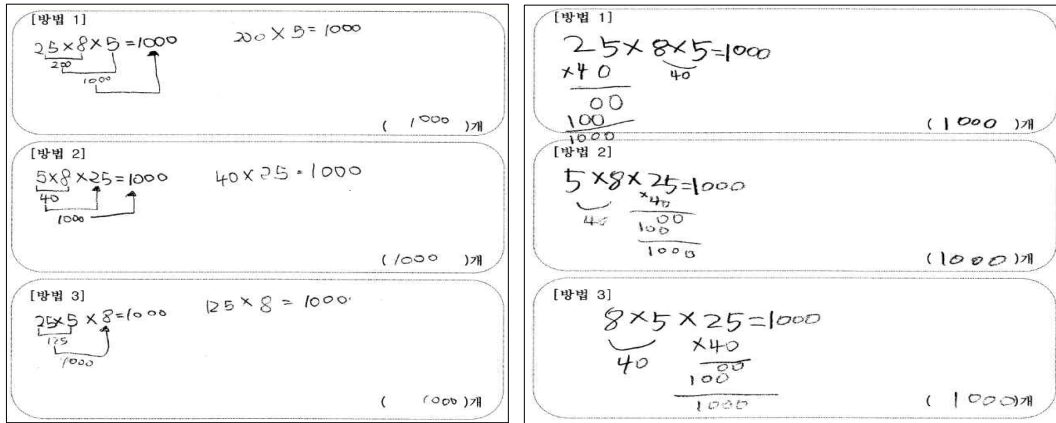 [방법 1]
25×8×5=1000
200×5=1000
200
1000
( 1000 )개
[방법 2]
5×8×25=1000
40×25=1000
40
1000
(1000 )개
[방법 3]
25×5×8=1000
125×8=1000
125
1000
( 1000 )개
[방법 1]
25×8×5=1000
×40
40
00
100
1000
( 1000 )개
[방법 2]
5×8×25=1000
×40
40
00
100
1000
(1000)개
[방법 3]
8×5×25=1000
×40
40
00
100
1000
( 1000)개